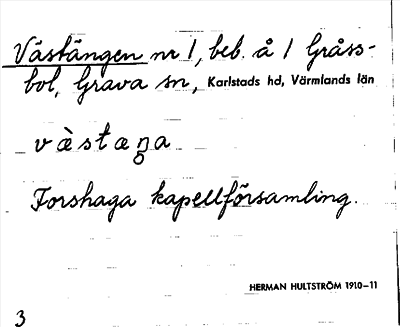 Västängen nr 1, beb. å 1 Gråss-
bol, Grava sn, Karlstads hd, Värmlands län
væ̀stæŋa
Forshaga kapellförsamling.
HERMAN HULTSTRÖM 1910–11
3